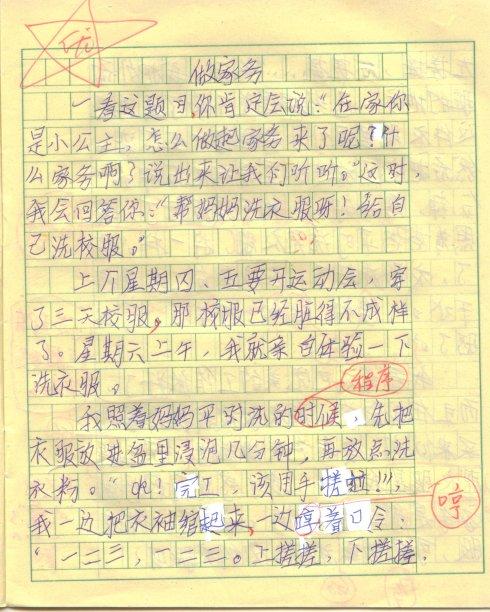 优
做家务
一看这题目,你肯定会说:“在家你
是小公主，怎么做起家务来了呢？什
么家务啊？说出来让我们听听。”这时，
我会回答你:“帮妈妈洗衣服呀！给自
己洗校服。”
上个星期四、五要开运动会，穿
了三天校服，那校服已经脏得不成样
了。星期六上午，我就亲自体验一下
洗衣服。
程序
我照着妈妈平时洗的时候，先把
衣服放进盆里浸泡几分钟，再放点洗
衣粉。“oh！完工，该用手搓啦!!!，
我一边把衣袖绾起来，一边哼着口令：
哼
“一二三，一二三。上搓搓，下搓搓，